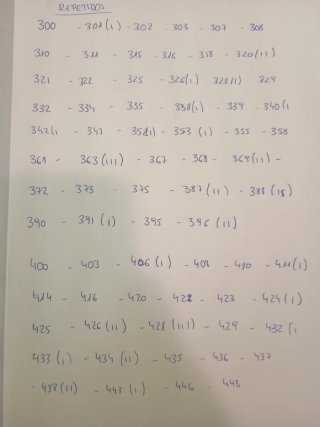 REPETIDOS
300 - 301(I) - 302 - 303 - 307 - 308
310 - 311 - 315 - 316 - 318 - 320(II)
321 - 322 - 325 - 326(I) 328(I) 329
332 - 334 - 335 - 338(I) - 339 - 340(I
342(I - 347 - 351(I) - 353 (I) - 355 - 358
363(III) - 367 - 368 - 369(II) -
372 - 373 - 375 - 387(II) - 388
390 - 391(I) - 395 - 396(II)
400 - 403 - 406(I) - 408 - 410 - 411(I)
414 - 416 - 420 - 422 - 423 - 424(I)
425 - 426(II) - 428(III) - 429 - 432(I
433(I) - 434(II) - 435 - 436 - 437
- 438(II) - 443(I) - 446 - 448